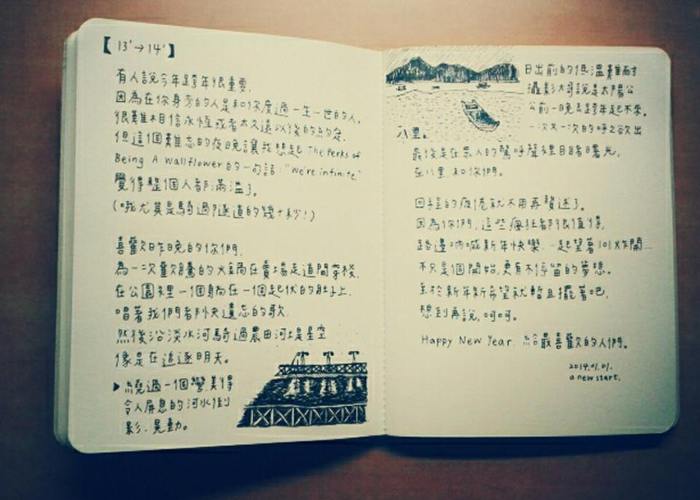 【13'→14'】
有人說今年跨年很重要,
因為在你身旁的人是和你度過一生一世的人。
很難相信永恆或者太久遠以後的約定,
但這個難忘的夜晚讓我想起 The Perks of
Being A Wallflower 的一句話: "We're infinite"
覺得整個人都滿溢了。
(哦尤其是騎過隧道的幾十秒!)
喜歡昨晚的你們,
為一次的大富翁在賣場走道間穿梭
在公園裡一個躺在一個起伏的肚子上
唱著我們都快遺忘的歌
然後沿淡水河騎過農田河堤星空
像是在追逐明天。
▶繞過一個彎美得
令人屏息的河水倒
影.晃動。
日出前的低溫難耐
攝影大哥說是太陽公
公前一晚去跨年起不來。
一次又一次的呼之欲出
八里。
最後是在眾人的驚呼聲裡目睹曙光,
在八里和你們。
回程的疲憊就不用再贅述了。
因為你們,這些瘋狂都很值得,
路邊吶喊新年快樂,一起望著101炸開...
不只是個開始,更有不停留的夢想。
至於新年新希望就暫且擺著吧,
想到再說,呵呵。
Happy New Year 給最喜歡的人們。
2014.01.01.
a new start.